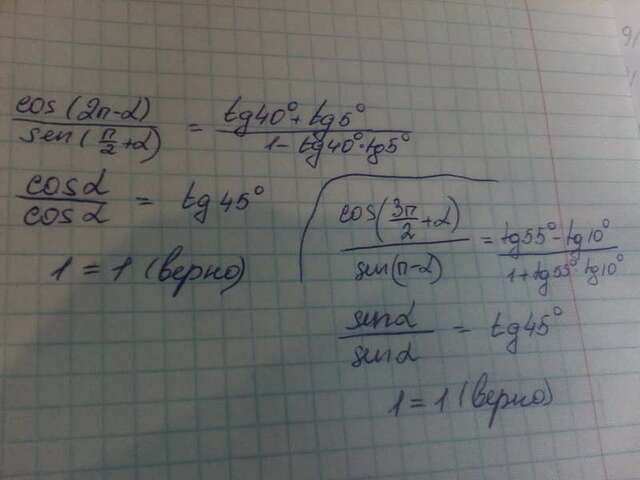 cos(2π-α)/sen(π/2+α) = tg40°+tg5°/1-tg40°·tg5°
cosα/cosα = tg45°
1=1 (верно)
cos(3π/2+α)/sin(π-α) = tg55°-tg10°/1+tg55°·tg10°
sinα/sinα = tg45°
1=1 (верно)